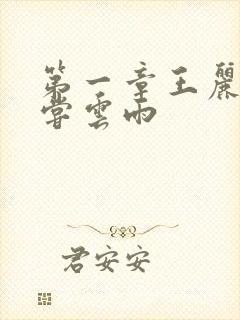 第一章王麗
嘗雲雨
君安安